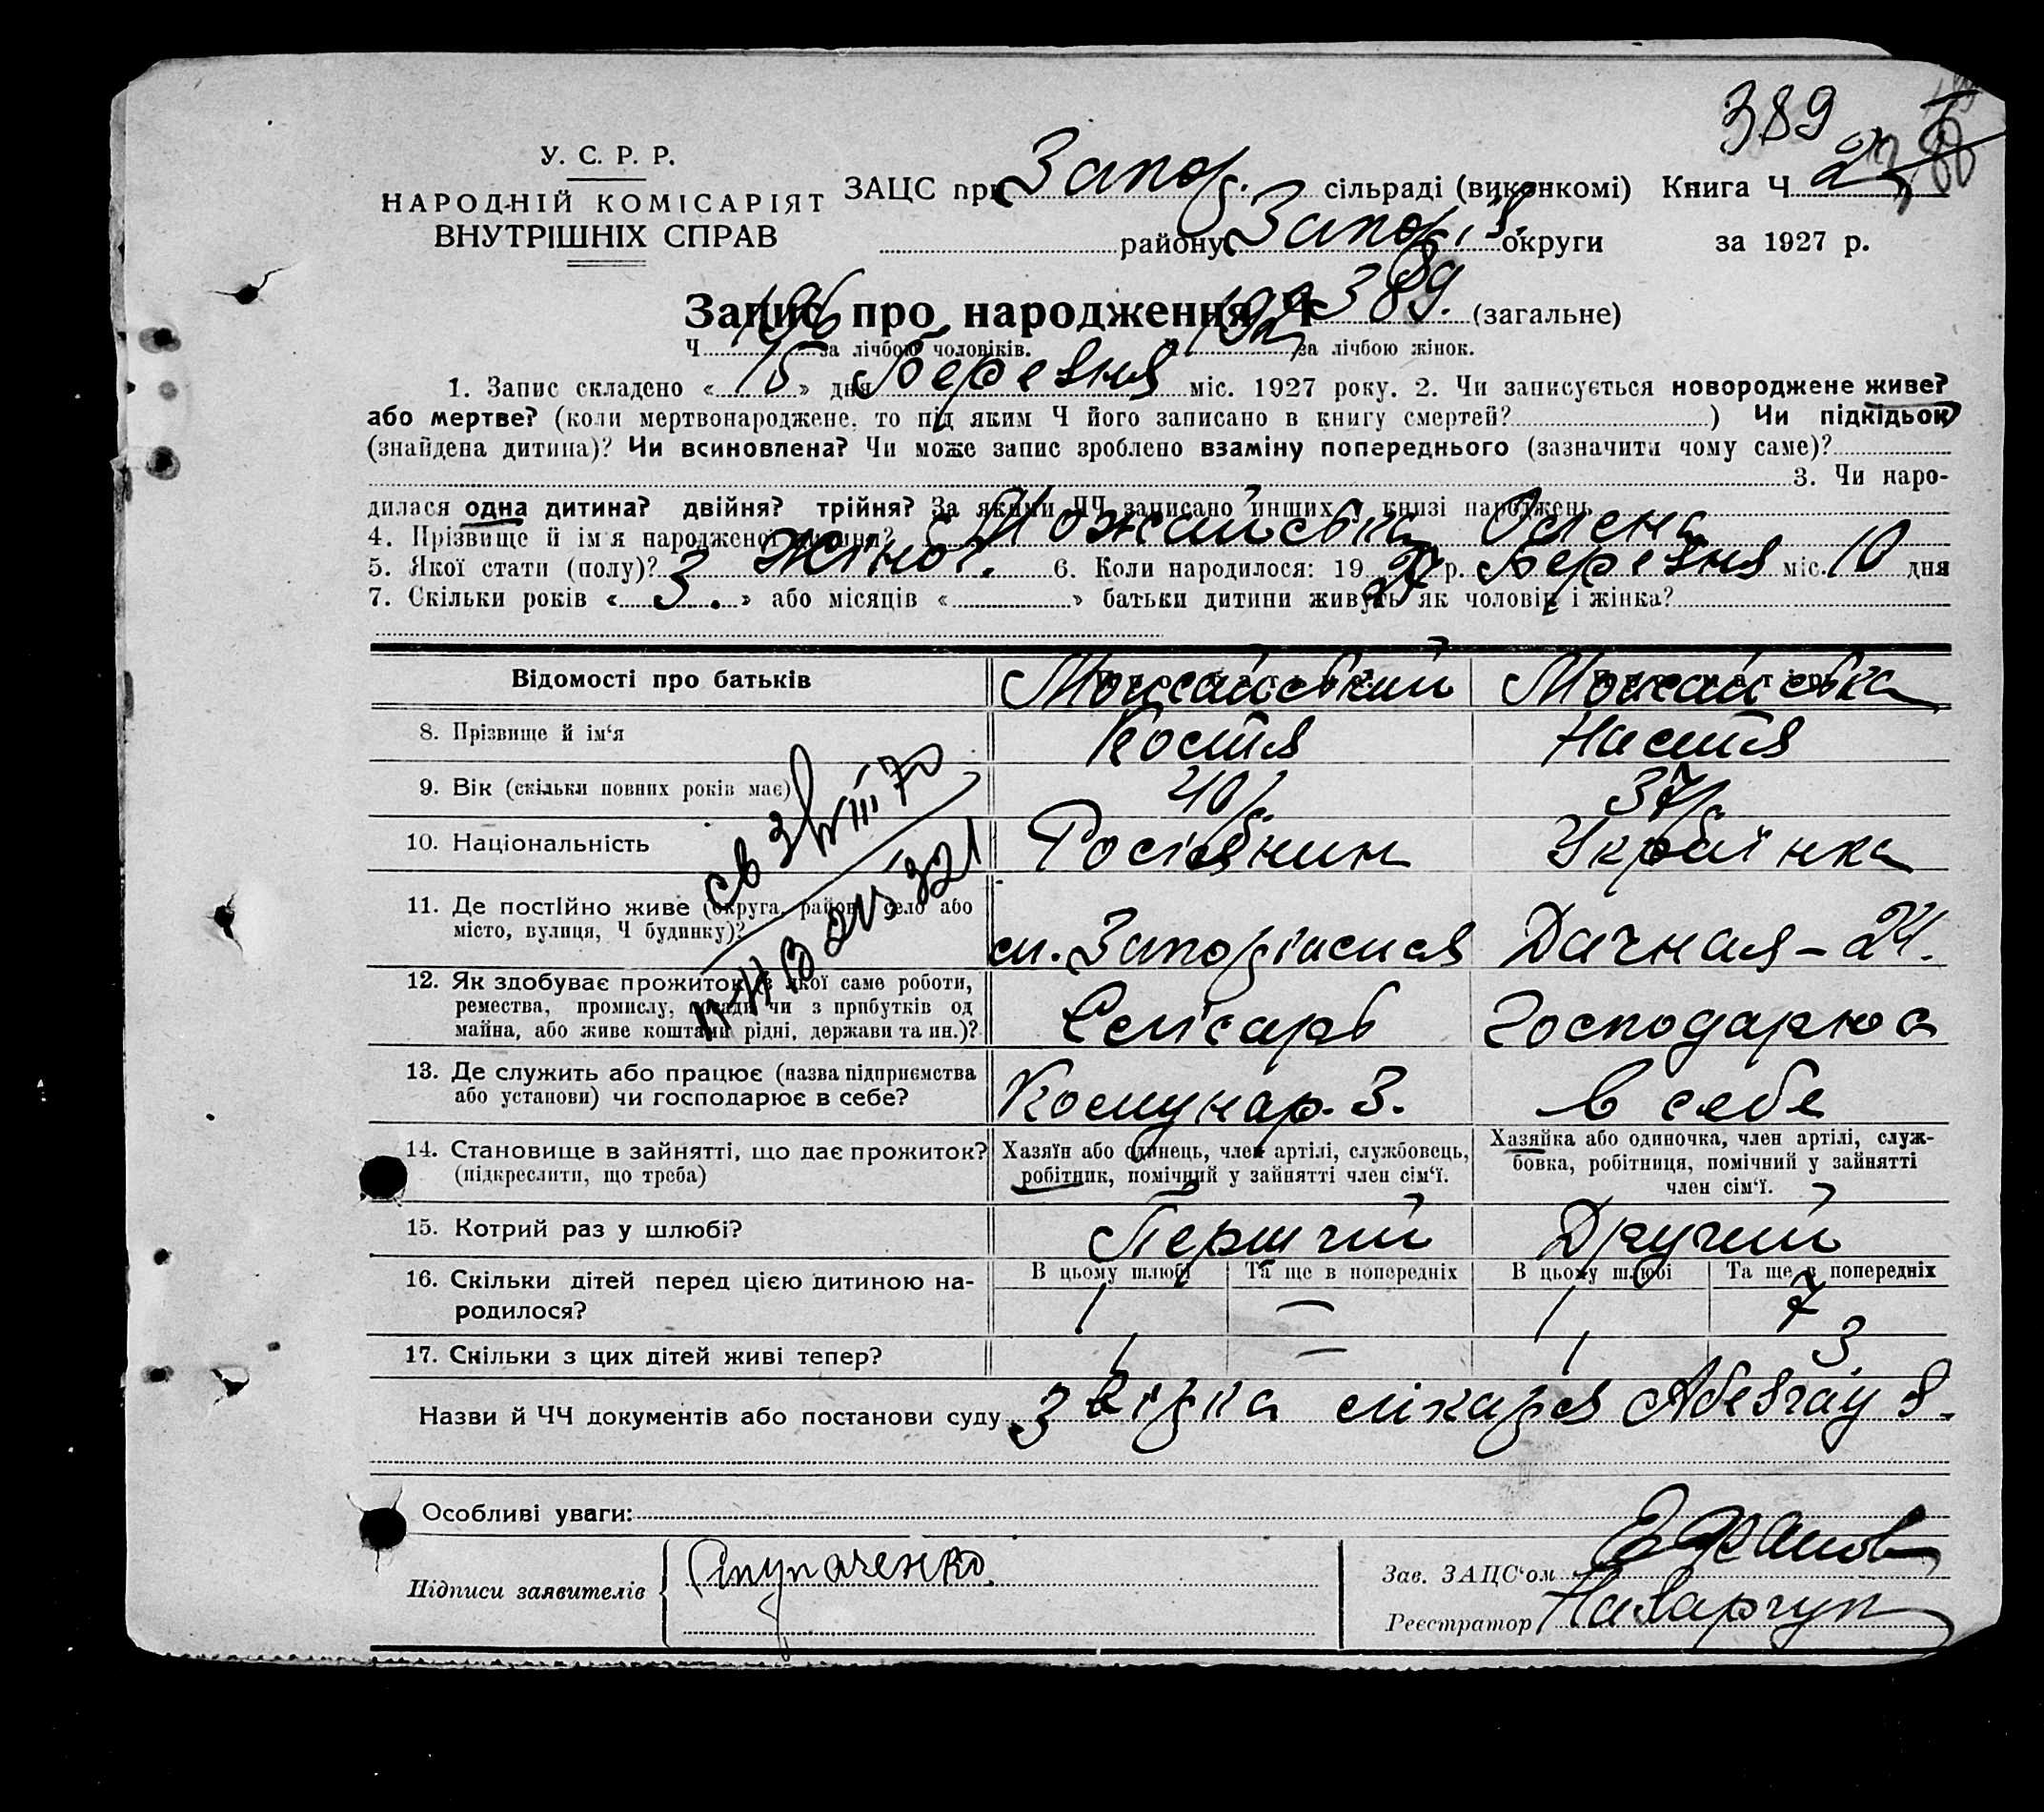 389
У. С. Р. Р.
НАРОДНІЙ КОМІСАРІЯТ
ВНУТРІШНІХ СПРАВ
ЗАЦС при Запор. сільраді (виконкомі) Книга Ч
району Запоріз. округи за 1927 р.
Запис про народження Ч 389. (загальне)
Ч 196 за лічбою чоловіків. Ч за лічбою жінок.
1. Запис складено « 15 » дня Березня міс. 1927 року. 2. Чи записується новороджене живе?
або мертве? (коли мертвонароджене, то під яким Ч його записано в книгу смертей? ) Чи підкідьок
(знайдена дитина)? Чи всиновлена? Чи може запис зроблено взаміну попереднього (зазначити чому саме)?
3. Чи наро-
дилася одна дитина? двійня? трійня? За якими ЧЧ записано инших у книзі народжень
4. Прізвище й ім'я народженої дитини? Можайська Олена
5. Якої стати (полу)? Жіноч. 6. Коли народилося: 19 27 р. Березня міс. 10 дня
7. Скільки років « 3. » або місяців « » батьки дитини живуть як чоловік і жінка?
Відомості про батьків Можайський Можайська
8. Прізвище й ім'я Костя Настя
9. Вік (скільки повних років має) 40 37
10. Національність Росіянин Українка
11. Де постійно живе (округа, район, село або
місто, вулиця, Ч будинку)? Дачная - 24.
12. Як здобуває прожиток (з якої саме роботи,
ремества, промислу, посади чи з прибутків од
майна, або живе коштами рідні, держави та ин.)? Слюсарь Господарює
13. Де служить або працює (назва підприємства
або установи) чи господарює в себе? Комунар. З. в себе
14. Становище в зайнятті, що дає прожиток?
(підкреслити, що треба)
Хазяїн або одинець, член артілі, службовець,
робітник, помічний у зайнятті член сім'ї.
Хазяйка або одиночка, член артілі, служ-
бовка, робітниця, помічний у зайнятті
член сім'ї.
15. Котрий раз у шлюбі? Перший Другий
16. Скільки дітей перед цією дитиною на-
родилося?
В цьому шлюбі Та ще в попередніх В цьому шлюбі Та ще в попередніх
1 — 1 7
17. Скільки з цих дітей живі тепер? 1 — 1 3
Назви й ЧЧ документів або постанови суду Звідка лікаря
Особливі уваги:
Підписи заявителів
Зав. ЗАЦС'ом
Реєстратор Назарчук